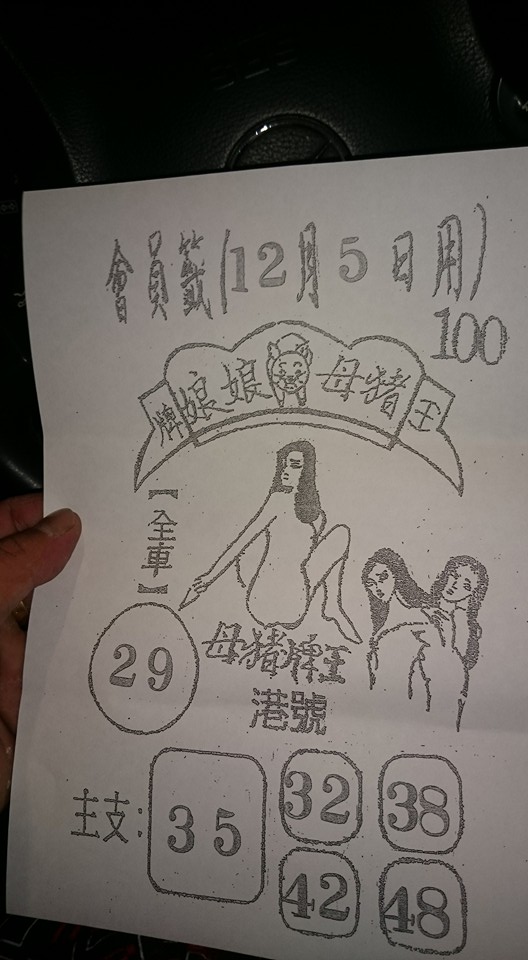 會員籤(12月5日用)
100
牌娘娘母豬王
【全車】
29
母豬牌王
港號
主支:
35
32
38
42
48